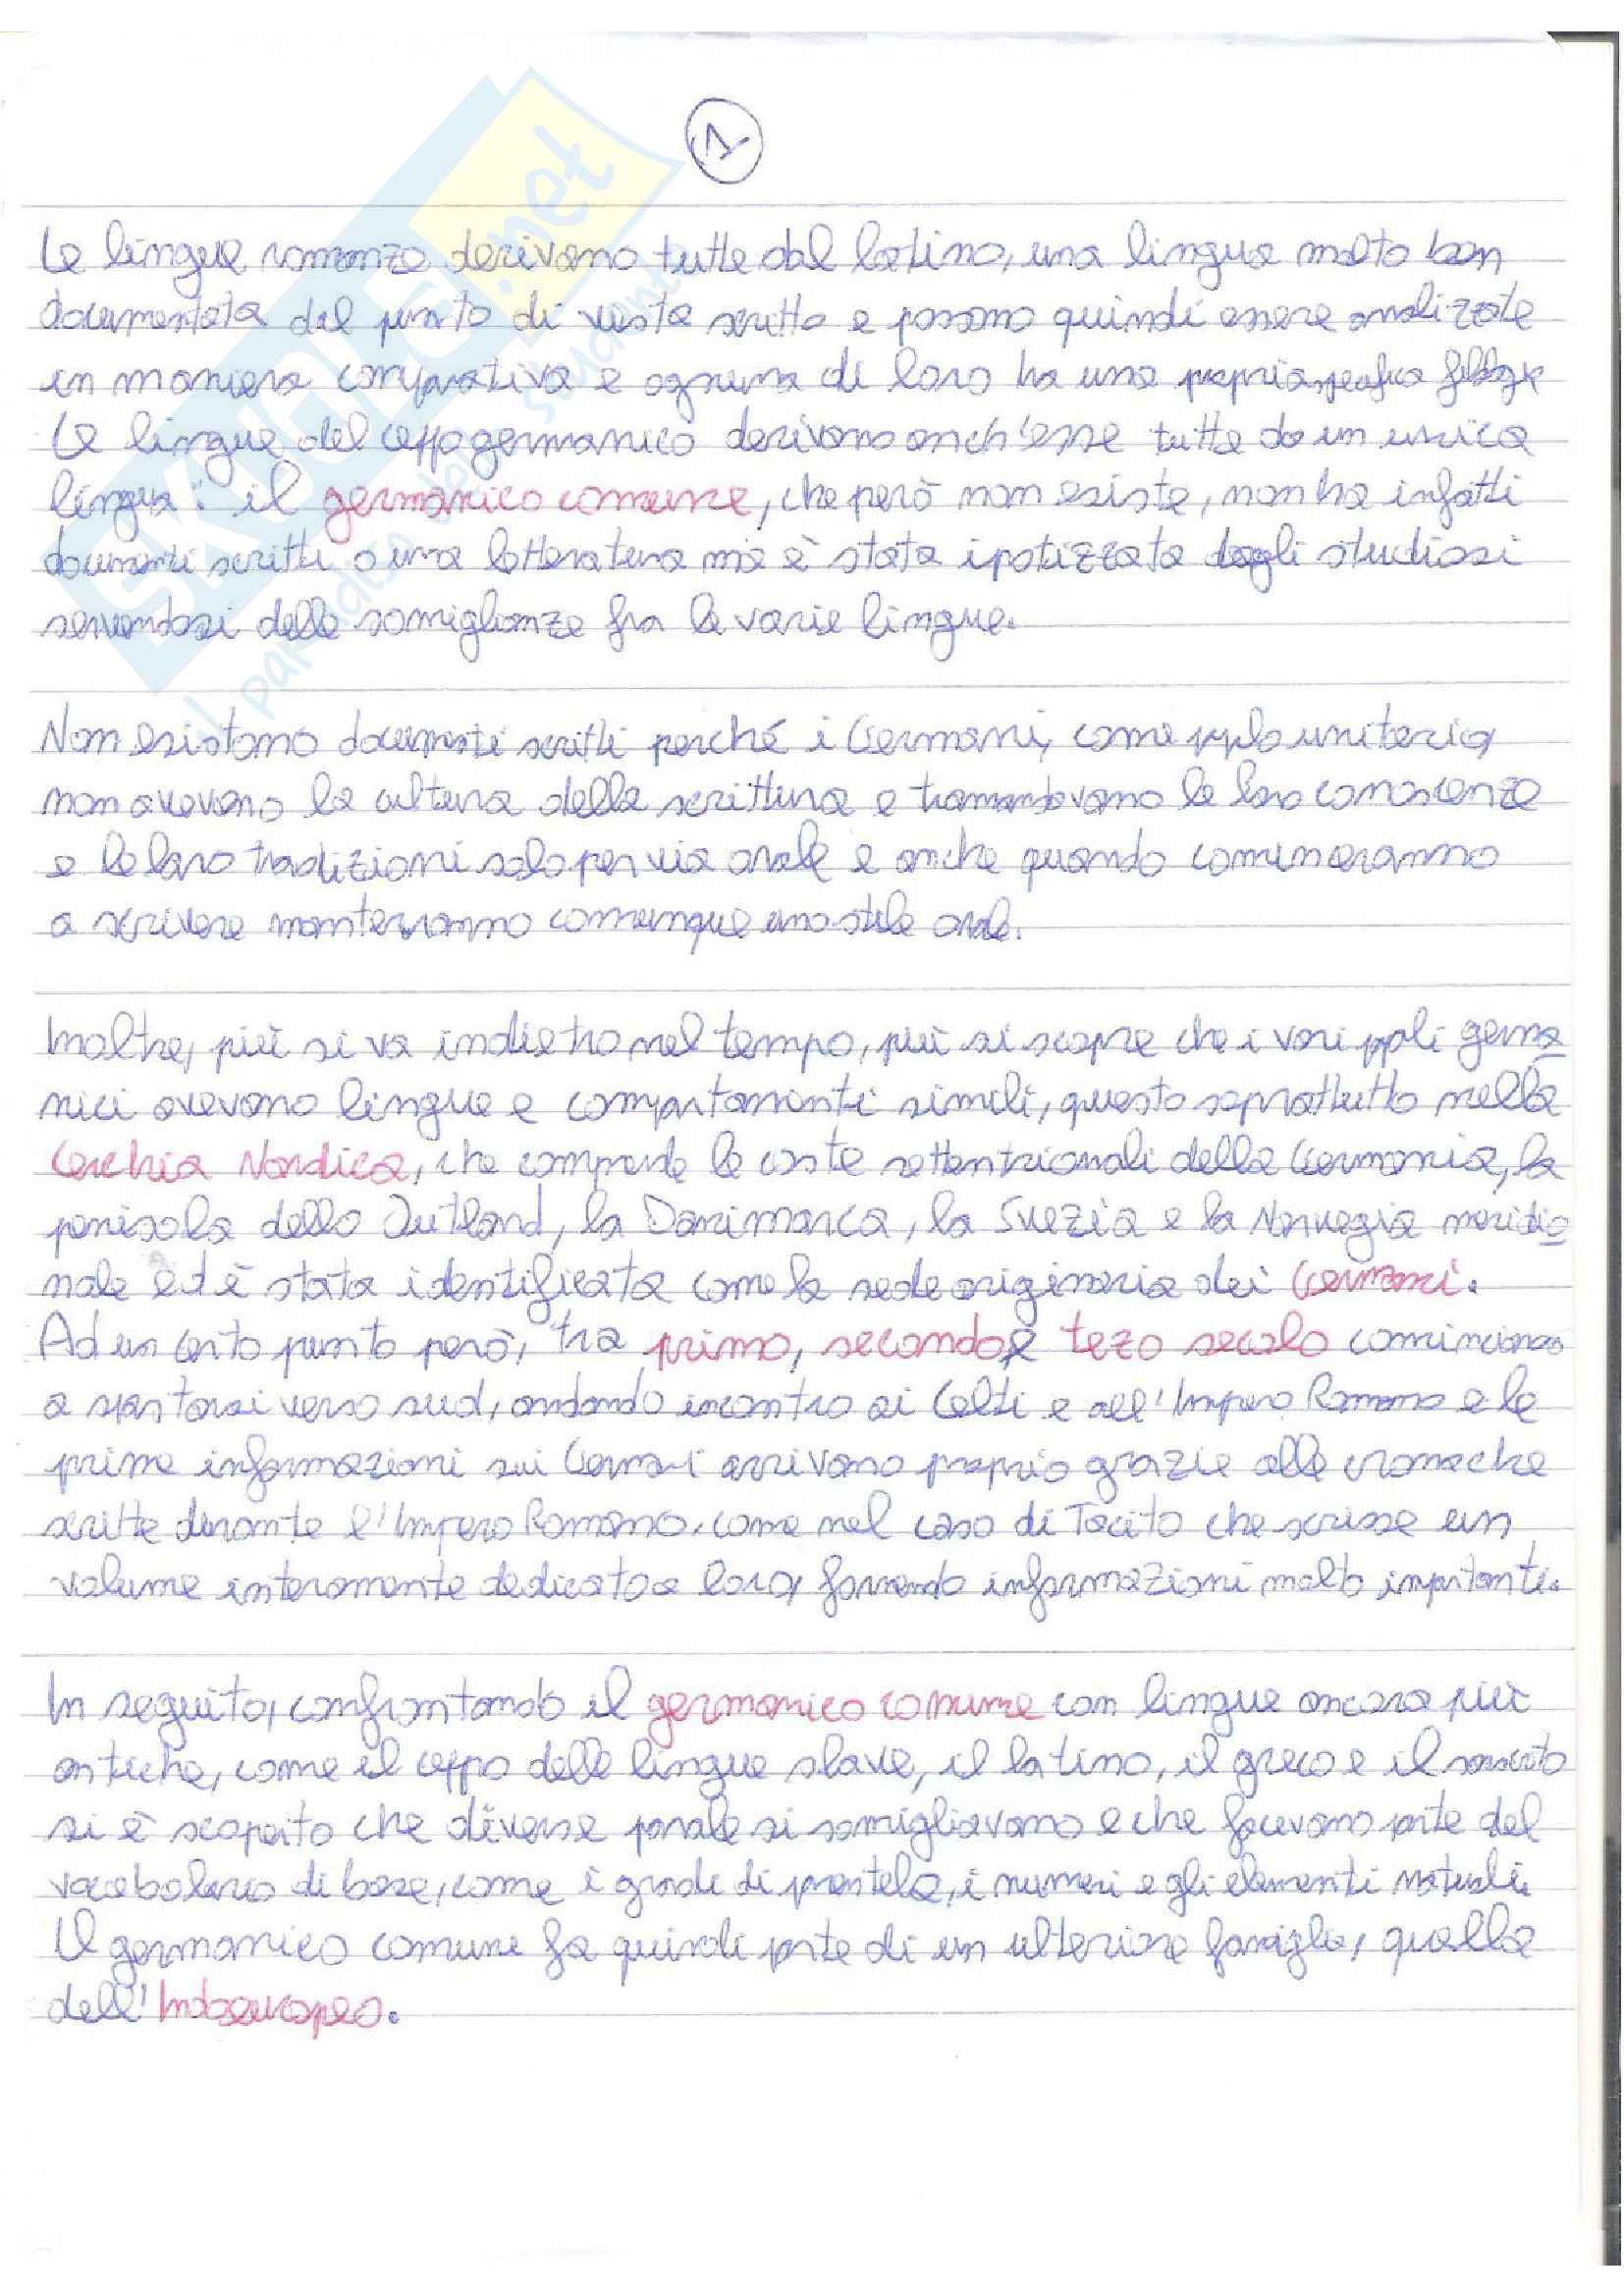 1
Le lingue romanze derivano tutte dal latino, una lingua molto ben
documentata dal punto di vista scritto e possono quindi essere analizzate
in maniera comparativa e ognuna di loro ha una propria specifica filologia
Le lingue del ceppo germanico derivano anch'esse tutte da un unica
lingua: il germanico comune, che però non esiste, non ha infatti
documenti scritti o una letteratura ma è stata ipotizzata dagli studiosi
servendosi delle somiglianze fra le varie lingue.
Non esistono documenti scritti perché i Germani, come pplo unitario,
non avevano la cultura della scrittura e tramandavano le loro conoscenze
e le loro tradizioni solo per via orale e anche quando cominceranno
a scrivere manterranno comunque uno stile orale.
Inoltre, più si va indietro nel tempo, più si scopre che i vari ppoli germa
nici avevano lingue e comportamenti simili, questo soprattutto nella
Cerchia Nordica, che comprende le coste settentrionali della Germania, la
penisola dello Jutland, la Danimarca, la Svezia e la Norvegia meridio
nale ed è stata identificata come la sede originaria dei Germani.
Ad un certo punto però, tra primo, secondo e tezo secolo cominciano
a spostarsi verso sud, andando incontro ai Celti e all'Impero Romano e le
prime informazioni sui Germani arrivano proprio grazie alle cronache
scritte durante l'Impero Romano, come nel caso di Tacito che scrisse un
volume interamente dedicato a loro, fornendo informazioni molto importanti.
In seguito, confrontando il germanico comune con lingue ancora più
antiche, come il ceppo delle lingue slave, il latino, il greco e il sanscrito
si è scoperto che diverse parole si somigliavano e che facevano parte del
vocabolario di base, come i gradi di parentela, i numeri e gli elementi naturali.
Il germanico comune fa quindi parte di un ulteriore famiglia, quella
dell'Indoeuropeo.
SKUOLA.net
il paradiso dello studente